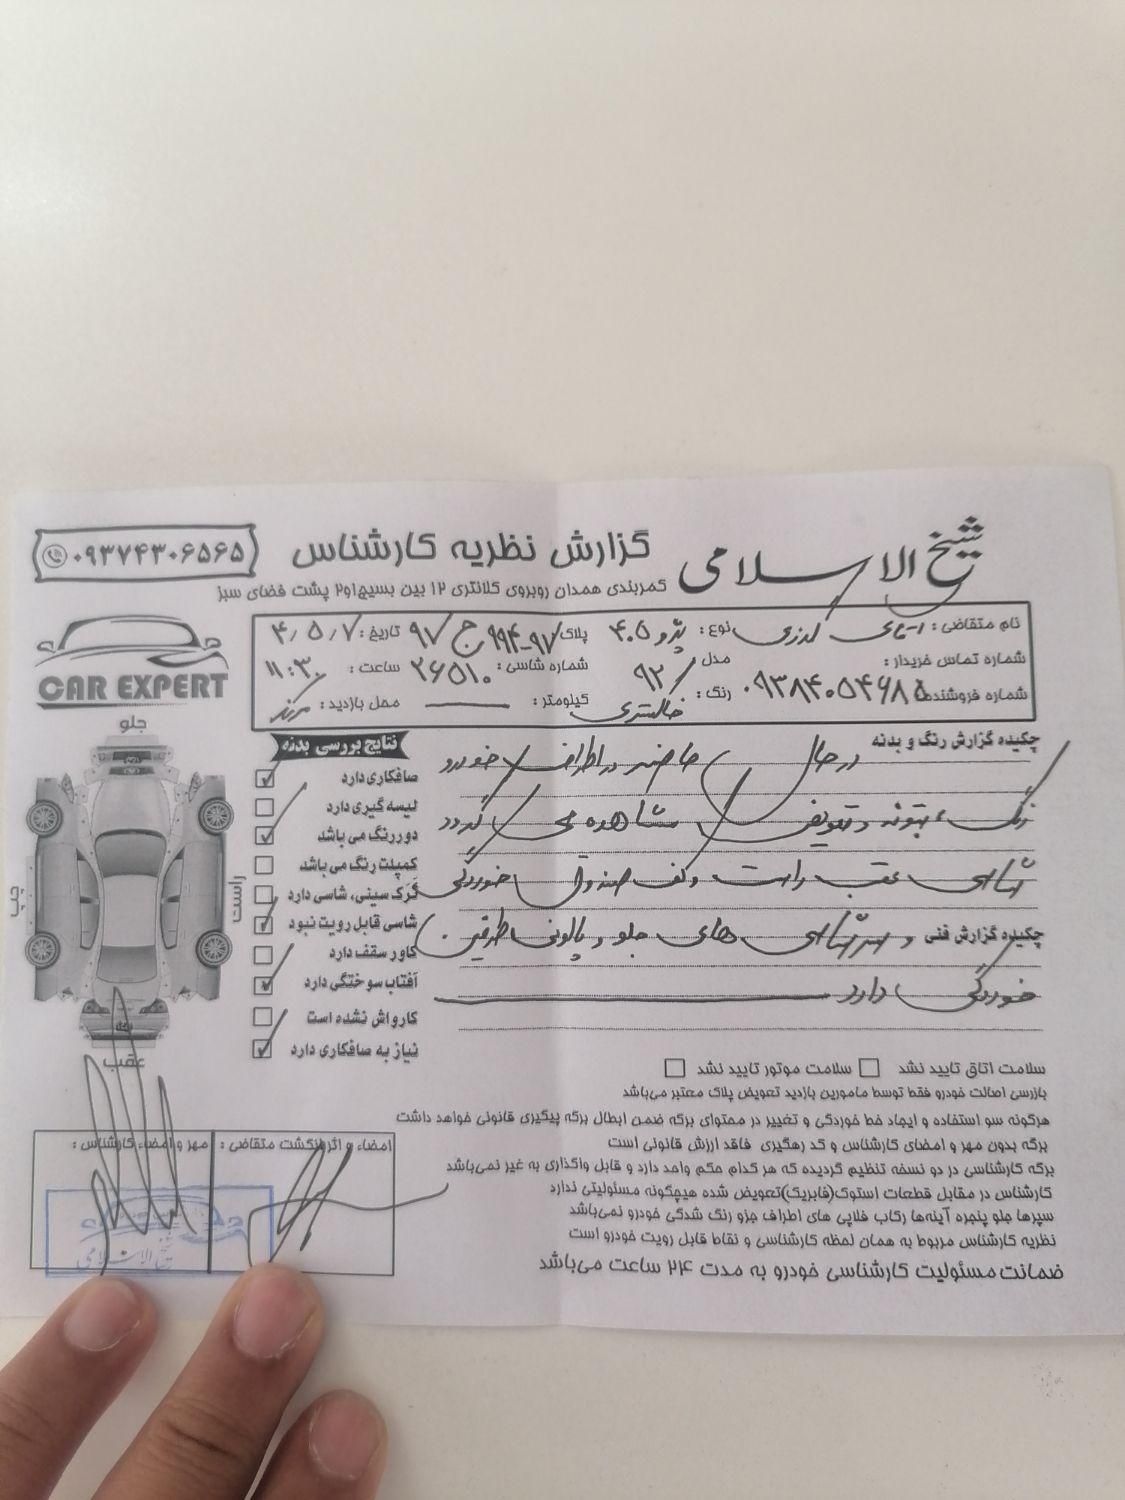 شیخ الاسلامی
گزارش نظریه کارشناس
۰۹۳۷۴۳۰۶۵۶۵
کمربندی همدان روبروی کلانتری ۱۲ بین بسیج ۱و۲ پشت فضای سبز
نام متقاضی: آقای نوع: پژو ۴۰۵ پلاک ۹۷-۹۹۴ ج ۹۷ تاریخ: ۴/۵/۷
شماره تماس خریدار: مدل ۹۲ شماره شاسی: ۲۶۵۱۰ ساعت: ۱۱:۳۰
شماره فروشنده: ۰۹۳۸۴۰۵۴۶۸۵ رنگ: خاکستری کیلومتر: محل بازدید:
CAR EXPERT
جلو
راست
چپ
عقب
نتایج بررسی بدنه
صافکاری دارد
لیسه گیری دارد
دوررنگ می باشد
کمپلت رنگ می باشد
تَرَک سینی، شاسی دارد
شاسی قابل رویت نبود
کاور سقف دارد
آفتاب سوختگی دارد
کارواش نشده است
نیاز به صافکاری دارد
چکیده گزارش رنگ و بدنه
در حال حاضر در اطراف خودرو
رنگ، بتونه و تعویض مشاهده می گردد
شاسی عقب راست و کف صندوق خوردگی
چکیده گزارش فنی و سرشاسی های جلو و پالونی طرفین
خوردگی دارد
سلامت اتاق تایید نشد سلامت موتور تایید نشد
بازرسی اصالت خودرو فقط توسط مامورین بازدید تعویض پلاک معتبر می‌باشد
هرگونه سو استفاده و ایجاد خط خوردگی و تغییر در محتوای برگه ضمن ابطال برگه پیگیری قانونی خواهد داشت
برگه بدون مهر و امضای کارشناس و کد رهگیری فاقد ارزش قانونی است
برگه کارشناسی در دو نسخه تنظیم گردیده که هر کدام حکم واحد دارد و قابل واگذاری به غیر نمی‌باشد
کارشناس در مقابل قطعات استوک(فابریک)تعویض شده هیچگونه مسئولیتی ندارد
سپرها جلو پنجره آینه‌ها رکاب فلاپی های اطراف جزو رنگ شدگی خودرو نمی‌باشد
نظریه کارشناس مربوط به همان لحظه کارشناسی و نقاط قابل رویت خودرو است
ضمانت مسئولیت کارشناسی خودرو به مدت ۲۴ ساعت می‌باشد
امضاء و اثرانگشت متقاضی:
مهر و امضاء کارشناس:
شیخ الاسلامی